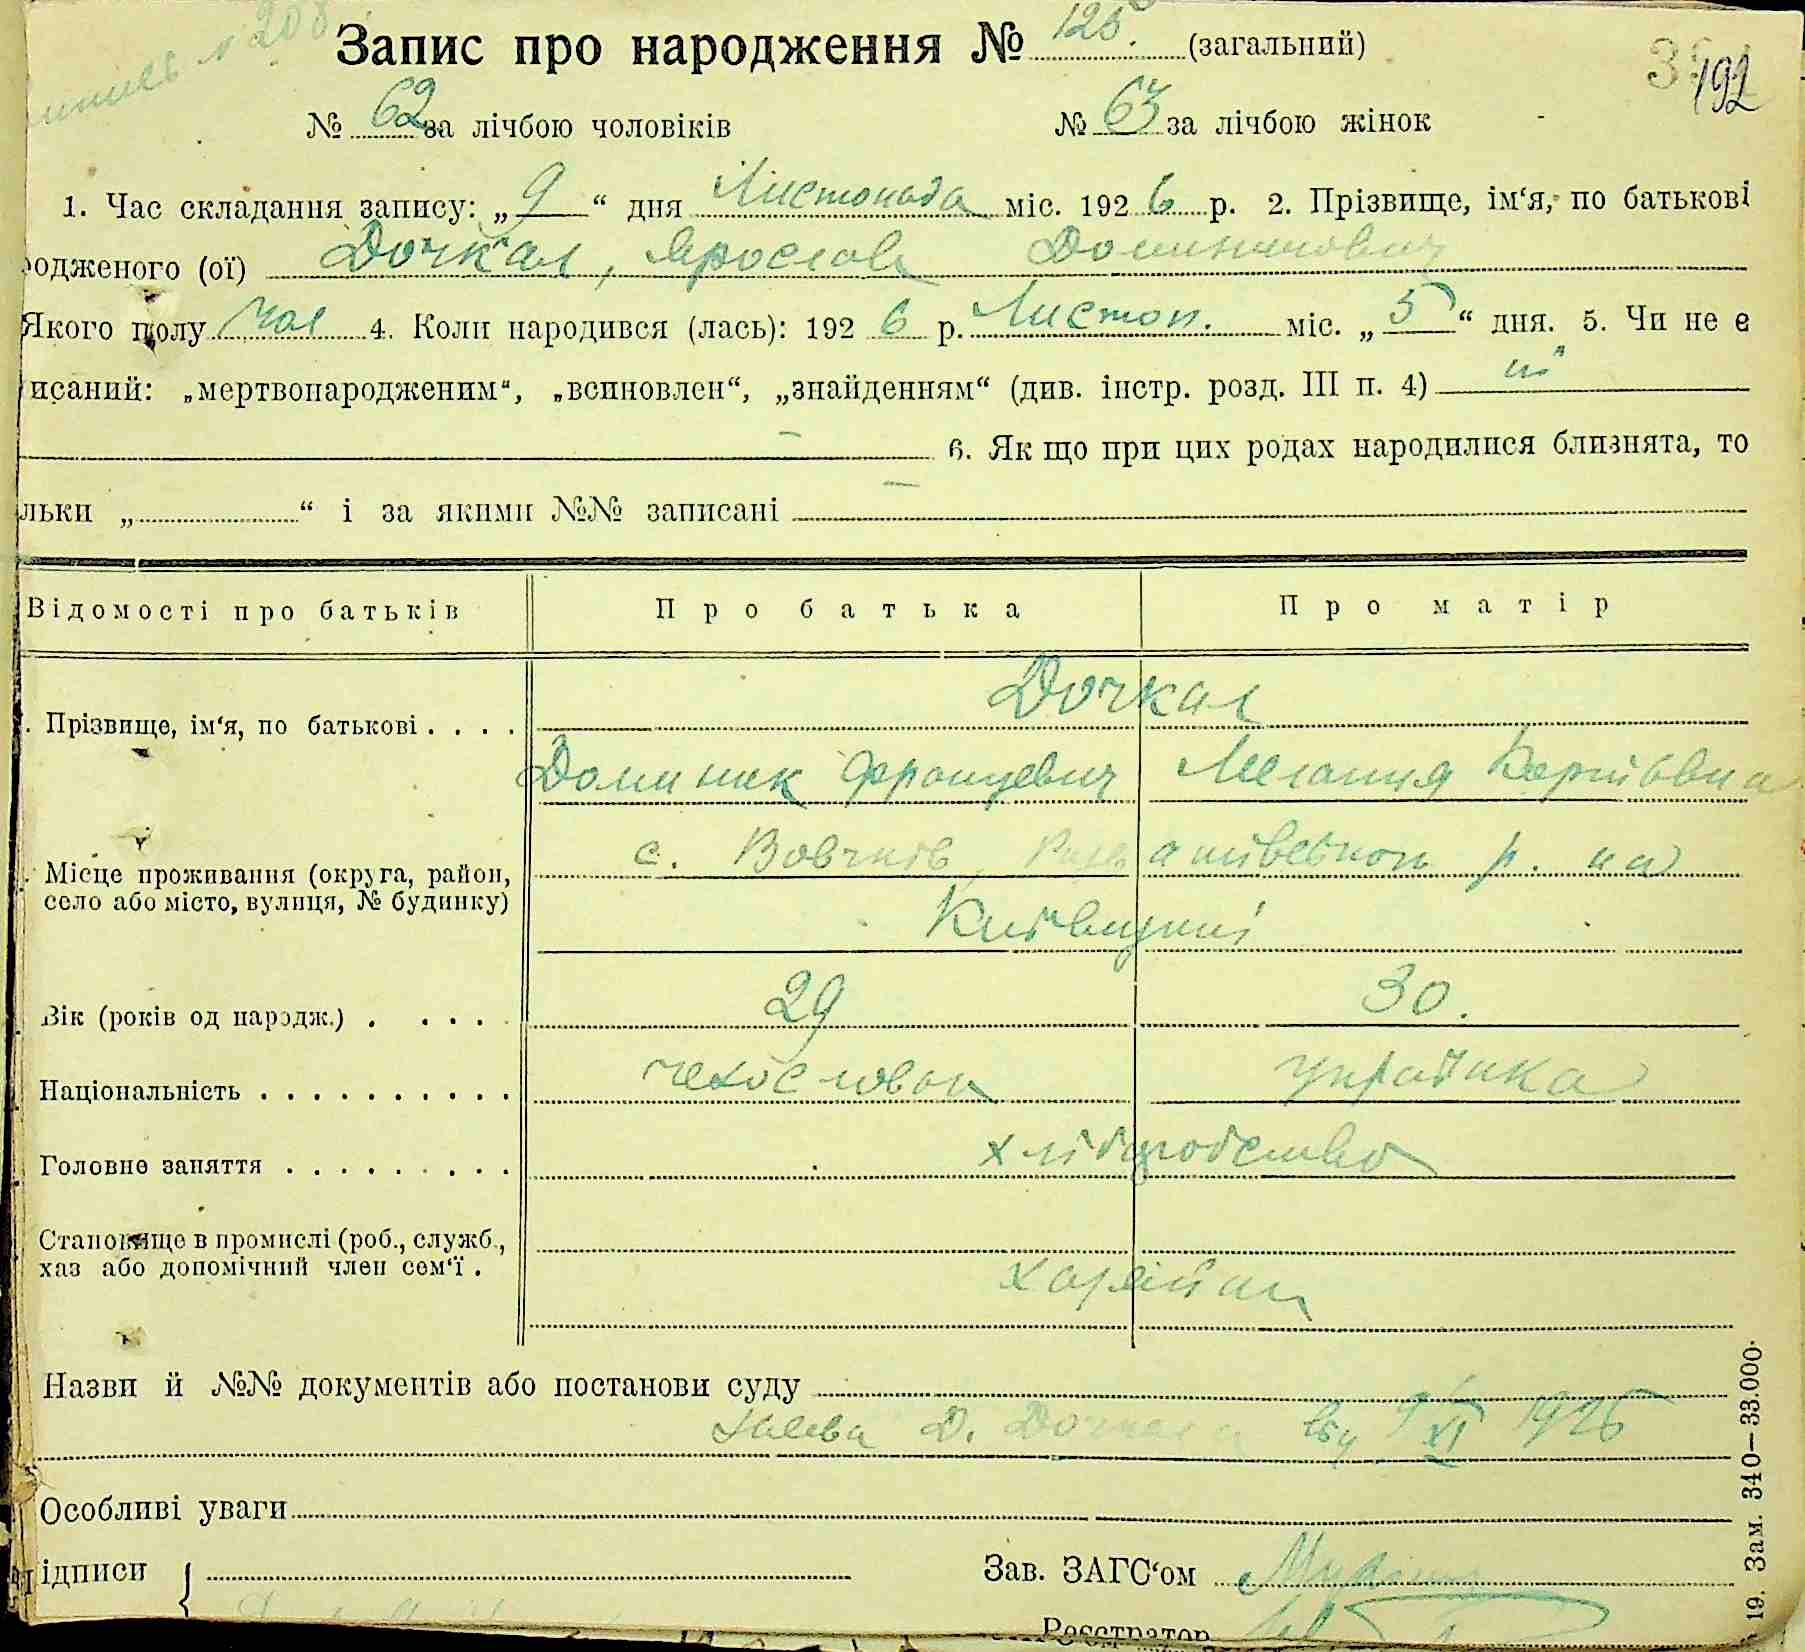 208
Запис про народження № 125. (загальний)
192
№ 62 за лічбою чоловіків № 63 за лічбою жінок
1. Час складання запису: „ 9 “ дня Листопада міс. 192 6 р. 2. Прізвище, ім‘я, по батькові
родженого (ої) Дочкал, Ярослав Доминикович
Якого полу чол 4. Коли народився (лась): 192 6 р. Листоп. міс. „ 5 “ дня. 5. Чи не є
исаний: „мертвонародженим“, „всиновлен“, „знайденням“ (див. інстр. розд. III п. 4) ні
— 6. Як що при цих родах народилися близнята, то
льки „ “ і за якими №№ записані —
Відомості про батьків Про батька Про матір
Дочкал
Прізвище, ім‘я, по батькові . . . .
Доминик Францевич Мелания
с. Вовчків р. на
Місце проживання (округа, район,
село або місто, вулиця, № будинку)
Київщині
Вік (років од народж.) . . . . 29 30.
Національність . . . . . . . . . . . чехословак українка
Головне заняття . . . . . . . . . хліборобство
Становище в промислі (роб., служб.,
хаз або допомічний член сем‘ї .
хазяїни
Назви й №№ документів або постанови суду
Заява Д. Дочкала від 9/XI 1926
Особливі уваги
ідписи { Зав. ЗАГС‘ом
Реєстратор
19. Зам. 340—33.000.